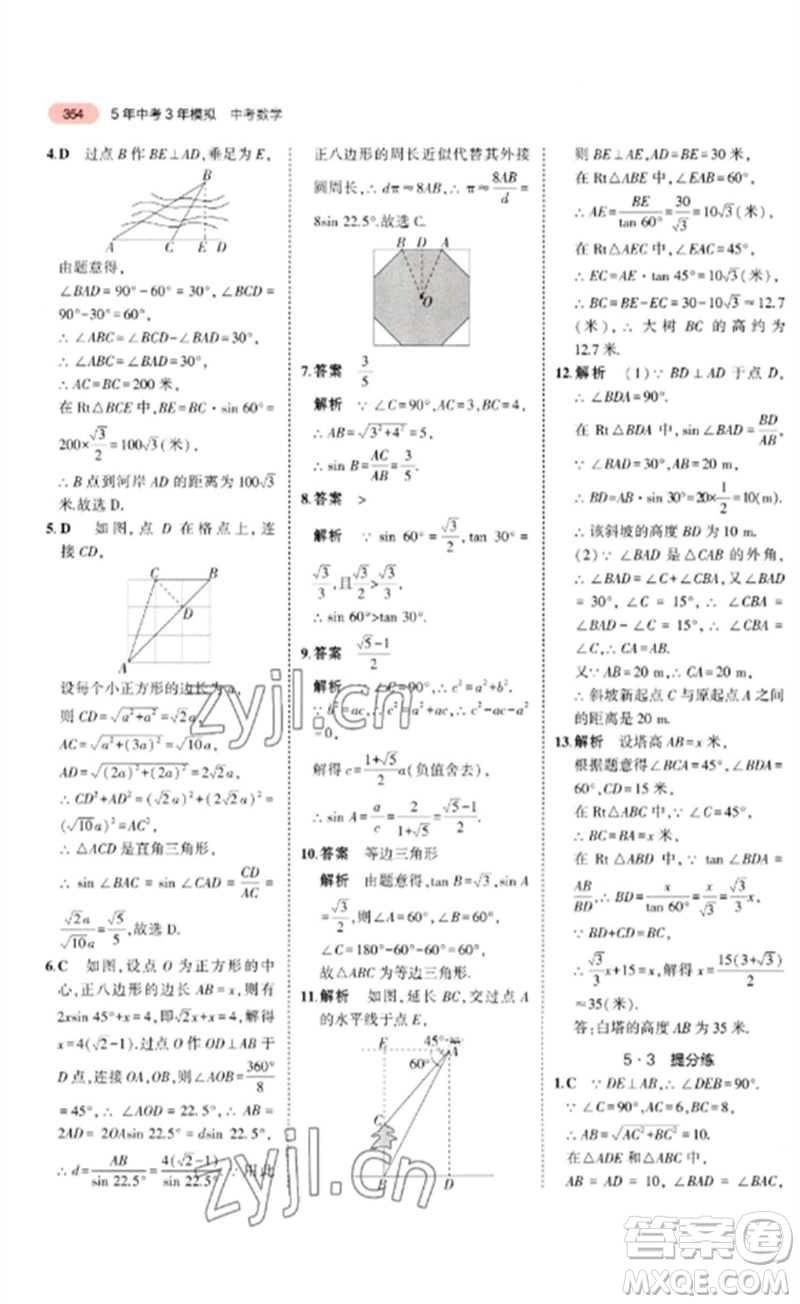 354 5年中考3年模拟 中考数学
4.D 过点 B 作 BE⊥AD,垂足为 E,
B
A C E D
由题意得,
∠BAD=90°-60°=30°,∠BCD=
90°-30°=60°,
∴∠ABC=∠BCD-∠BAD=30°,
∴AC=BC=200 米,
在 Rt△BCE 中,BE=BC·sin 60°=
200×√3/2=100√3(米),
∴B 点到河岸 AD 的距离为 100√3
米.故选 D.
5.D 如图,点 D 在格点上,连
接 CD,
C B
D
A
设每个小正方形的边长为 a,
则 CD=√(a²+a²)=√2a,
AC=√(a²+(3a)²)=√10a,
AD=√((2a)²+(2a)²)=2√2a,
∴CD²+AD²=(√2a)²+(2√2a)²=
(√10a)²=AC²,
∴△ACD 是直角三角形,
∴sin∠BAC=sin∠CAD=CD/AC=
√2a/√10a=√5/5,故选 D.
6.C 如图,设点 O 为正方形的中
心,正八边形的边长 AB=x,则有
2xsin 45°+x=4,即√2x+x=4,解得
x=4(√2-1).过点 O 作 OD⊥AB 于
D 点,连接 OA,OB,∠AOB=360°/8
=45°,∴∠AOD=22.5°,∴AB=
2AD=2OAsin 22.5°=dsin 22.5°,
∴d=AB/sin 22.5°=4(√2-1)/sin 22.5°.∵用此
正八边形的周长近似代替其外接
圆周长,∴dπ≈8AB,∴π≈8AB/d=
8sin 22.5°.故选 C.
B D A
O
7.答案 3/5
解析 ∵∠C=90°,AC=3,BC=4,
∴AB=√(3²+4²)=5,
∴sin B=AC/AB=3/5.
8.答案 >
解析 ∵sin 60°=√3/2,tan 30°=
√3/3,且√3/2>√3/3,
∴sin 60°>tan 30°.
9.答案 (√5-1)/2
解析 ∵∠C=90°,∴c²=a²+b².
∵b²=ac,∴c²=a²+ac,∴c²-a²-ac
=0,
解得 c=(1+√5)/2 a(负值舍去),
∴sin A=a/c=2/(1+√5)=(√5-1)/2.
10.答案 等边三角形
解析 由题意得,tan B=√3,sin A
=√3/2,则∠A=60°,∠B=60°,
∠C=180°-60°-60°=60°,
故△ABC 为等边三角形.
11.解析 如图,延长 BC,交过点 A
的水平线于点 E,
E 45° A
60°
C
B D
则 BE⊥AE,AD=BE=30 米,
在 Rt△ABE 中,∠EAB=60°,
∴AE=BE/tan 60°=30/√3=10√3(米),
在 Rt△AEC 中,∠EAC=45°,
∴EC=AE·tan 45°=10√3 米,
∴BC=BE-EC=30-10√3≈12.7
(米),∴大树 BC 的高约为
12.7 米.
12.解析 (1)∵BD⊥AD 于点 D,
∴∠BDA=90°.
在 Rt△BDA 中,sin∠BAD=BD/AB,
∵∠BAD=30°,AB=20 m,
∴BD=AB·sin∠BAD=20×1/2=10(m),
∴该斜坡的高度 BD 为 10 m.
(2)∵∠BAD 是△CAB 的外角,
∴∠BAD=∠C+∠CBA,又∠BAD
=30°,∠C=15°,∴∠CBA=15°,
∴∠C=∠CBA,
∴AC=AB.
又∵AB=20 m,∴斜坡新起点 C 与原起点 A 之间
的距离是 20 m.
13.解析 设塔高 AB=x 米,
根据题意得∠BCA=45°,∠BDA=
60°,CD=15 米,
在 Rt△ABC 中,∵∠C=45°,
∴BC=BA=x 米,
在 Rt△ABD 中,∵tan∠BDA=
AB/BD,∴BD=x/tan 60°=x/√3=√3/3 x,
∵BD+CD=BC,
∴√3/3 x+15=x,解得 x=15(3+√3)/2
≈35(米).
答:白塔的高度 AB 为 35 米.
5·3 提分练
1.C ∵DE⊥AB,∴∠DEB=90°.
∴AB=√(AC²+BC²)=10.
在△ADE 和△ABC 中,
AB=AD=10,∠BAD=∠BAC,
zyjl.cn
zyjl.cn
答案圈
MXQE.COM